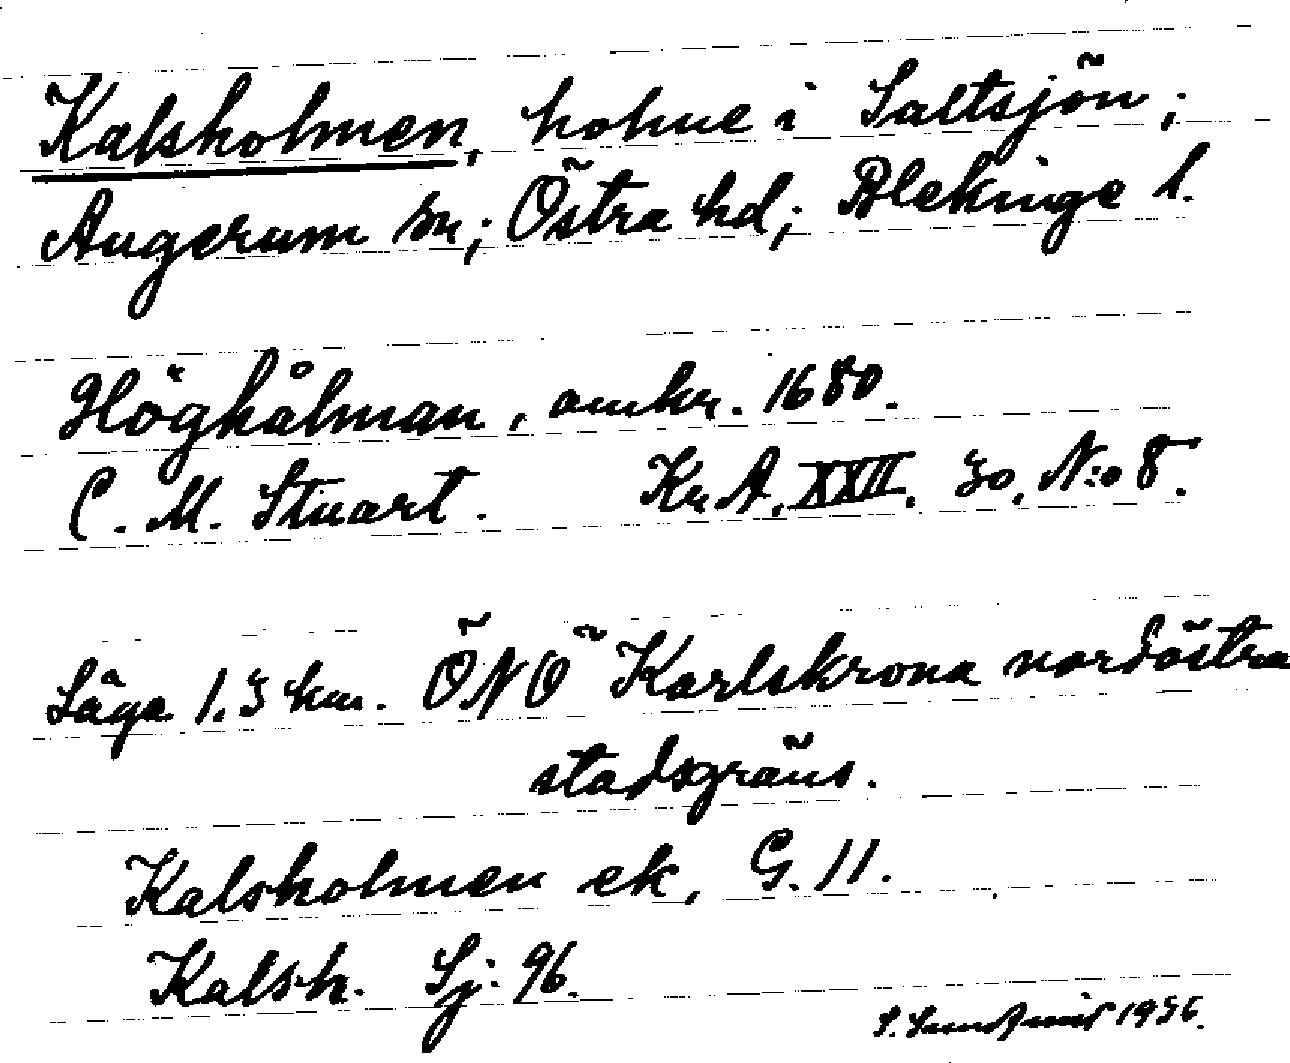 Kalsholmen, holme i Saltsjön;
Augerum sn; Östra hd; Blekinge l.
Höghålman, omkr. 1680.
C. M. Stuart. Kr.A. XXII. 30. N:o 8.
Läge 1.3 km. ÖNÖ Karlskrona nordöstra
stadsgräns.
Kalsholmen ek, G. 11.
Kalsh. Sj. 96.
1956.